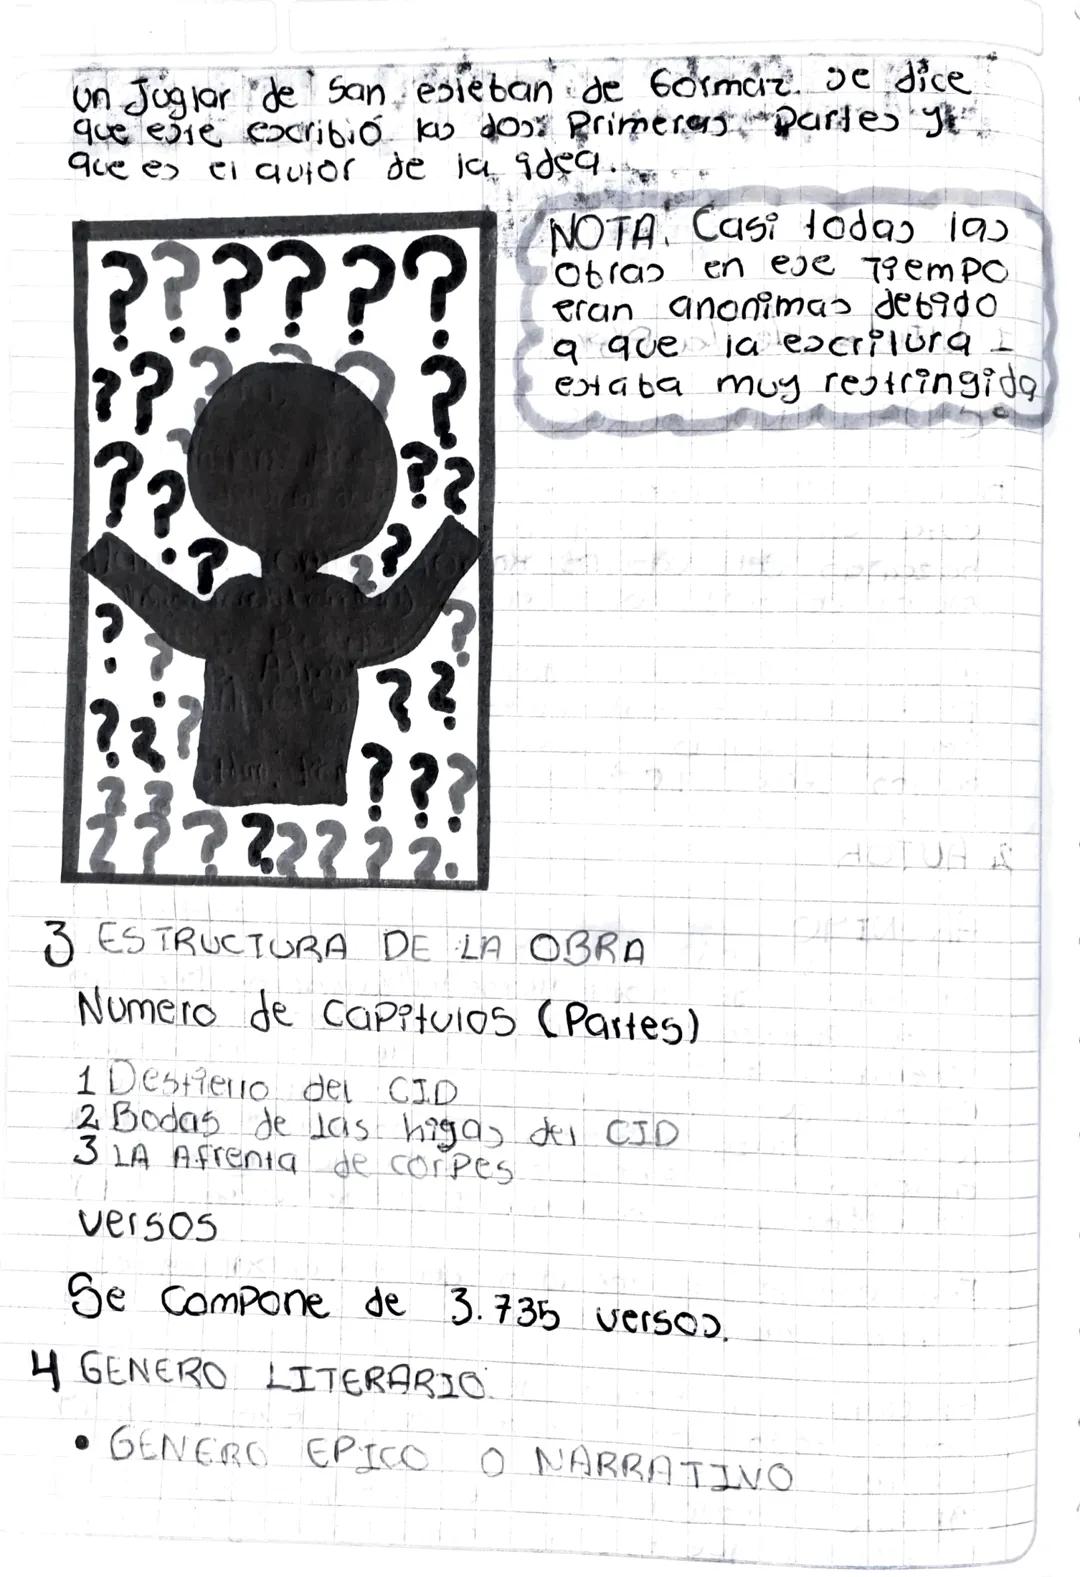 un Juglar de San esteban de Gormaz. Se dice
que este escribió las dos Primeras Partes y
que es el autor de la idea.
NOTA. Casi todas las
obras en ese Tiempo
eran anonimas debido
a que la escritura
estaba muy restringida
? ? ? ? ? ?
3 ESTRUCTURA DE LA OBRA
Numero de Capitulos (Partes)
1 Destierro del CID
2 Bodas de las higas del CID
3 LA Afrenta de corpes
versos
Se compone de 3.735 versos.
4 GENERO LITERARIO.
• GENERO EPICO O NARRATIVO